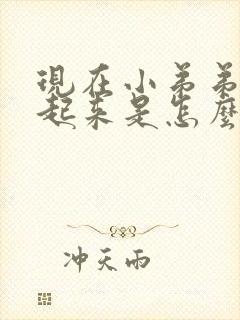 現在小弟弟
起来是怎麼
冲天雨